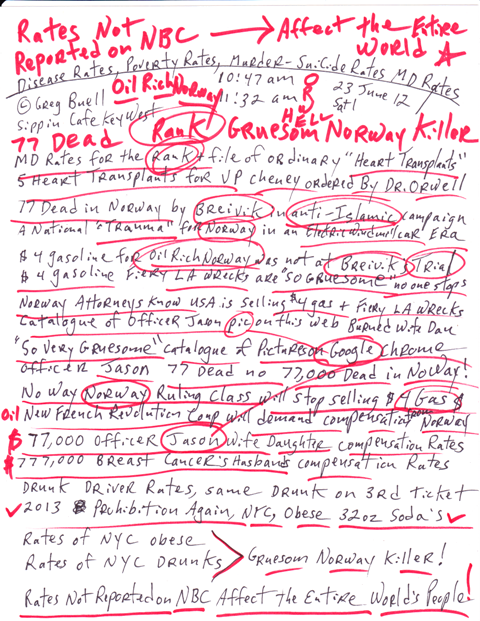 Rates Not
Reported on NBC → Affect the Entire
World ☆
Disease Rates, Poverty Rates, Murder-Suicide Rates MD Rates
© Greg Buell Oil Rich Norway 10:47 am 23 June 12
Sippin Cafe Key West 11:32 am HELL Sat
77 Dead Rank Gruesom Norway Killer
MD Rates for the Rank + file of ordinary "Heart Transplants"
5 Heart Transplants for VP Cheney ordered By Dr. Orwell
77 Dead in Norway by Breivik in anti-Islamic campaign
A National "Trauma" for Norway in an Electric windmill car ERA
$4 gasoline for Oil Rich Norway was not at Breivik's Trial
$4 gasoline Fiery LA wrecks are "so Gruesome" no one stops
Norway Attorneys know USA is selling $4 gas + Fiery LA wrecks
Catalogue of Officer Jason pic on this web Burned Wife Dau
"So Very Gruesome" catalogue of Pictures on Google Chrome
Officer Jason 77 Dead no 77,000 Dead in Noway!
No Way Norway Ruling Class will stop selling $4 Gas $
Oil New French Revolution Coup will demand compensation from Norway
$77,000 Officer Jason Wife Daughter compensation Rates
$777,000 Breast Cancer's Husbands compensation Rates
Drunk Driver Rates, same Drunk on 3rd ticket
✓ 2013 Prohibition Again, NYC, Obese 32oz Soda's ✓
Rates of NYC obese
Rates of NYC Drunks > Gruesom Norway Killer!
Rates Not Reported on NBC Affect the Entire World's People!